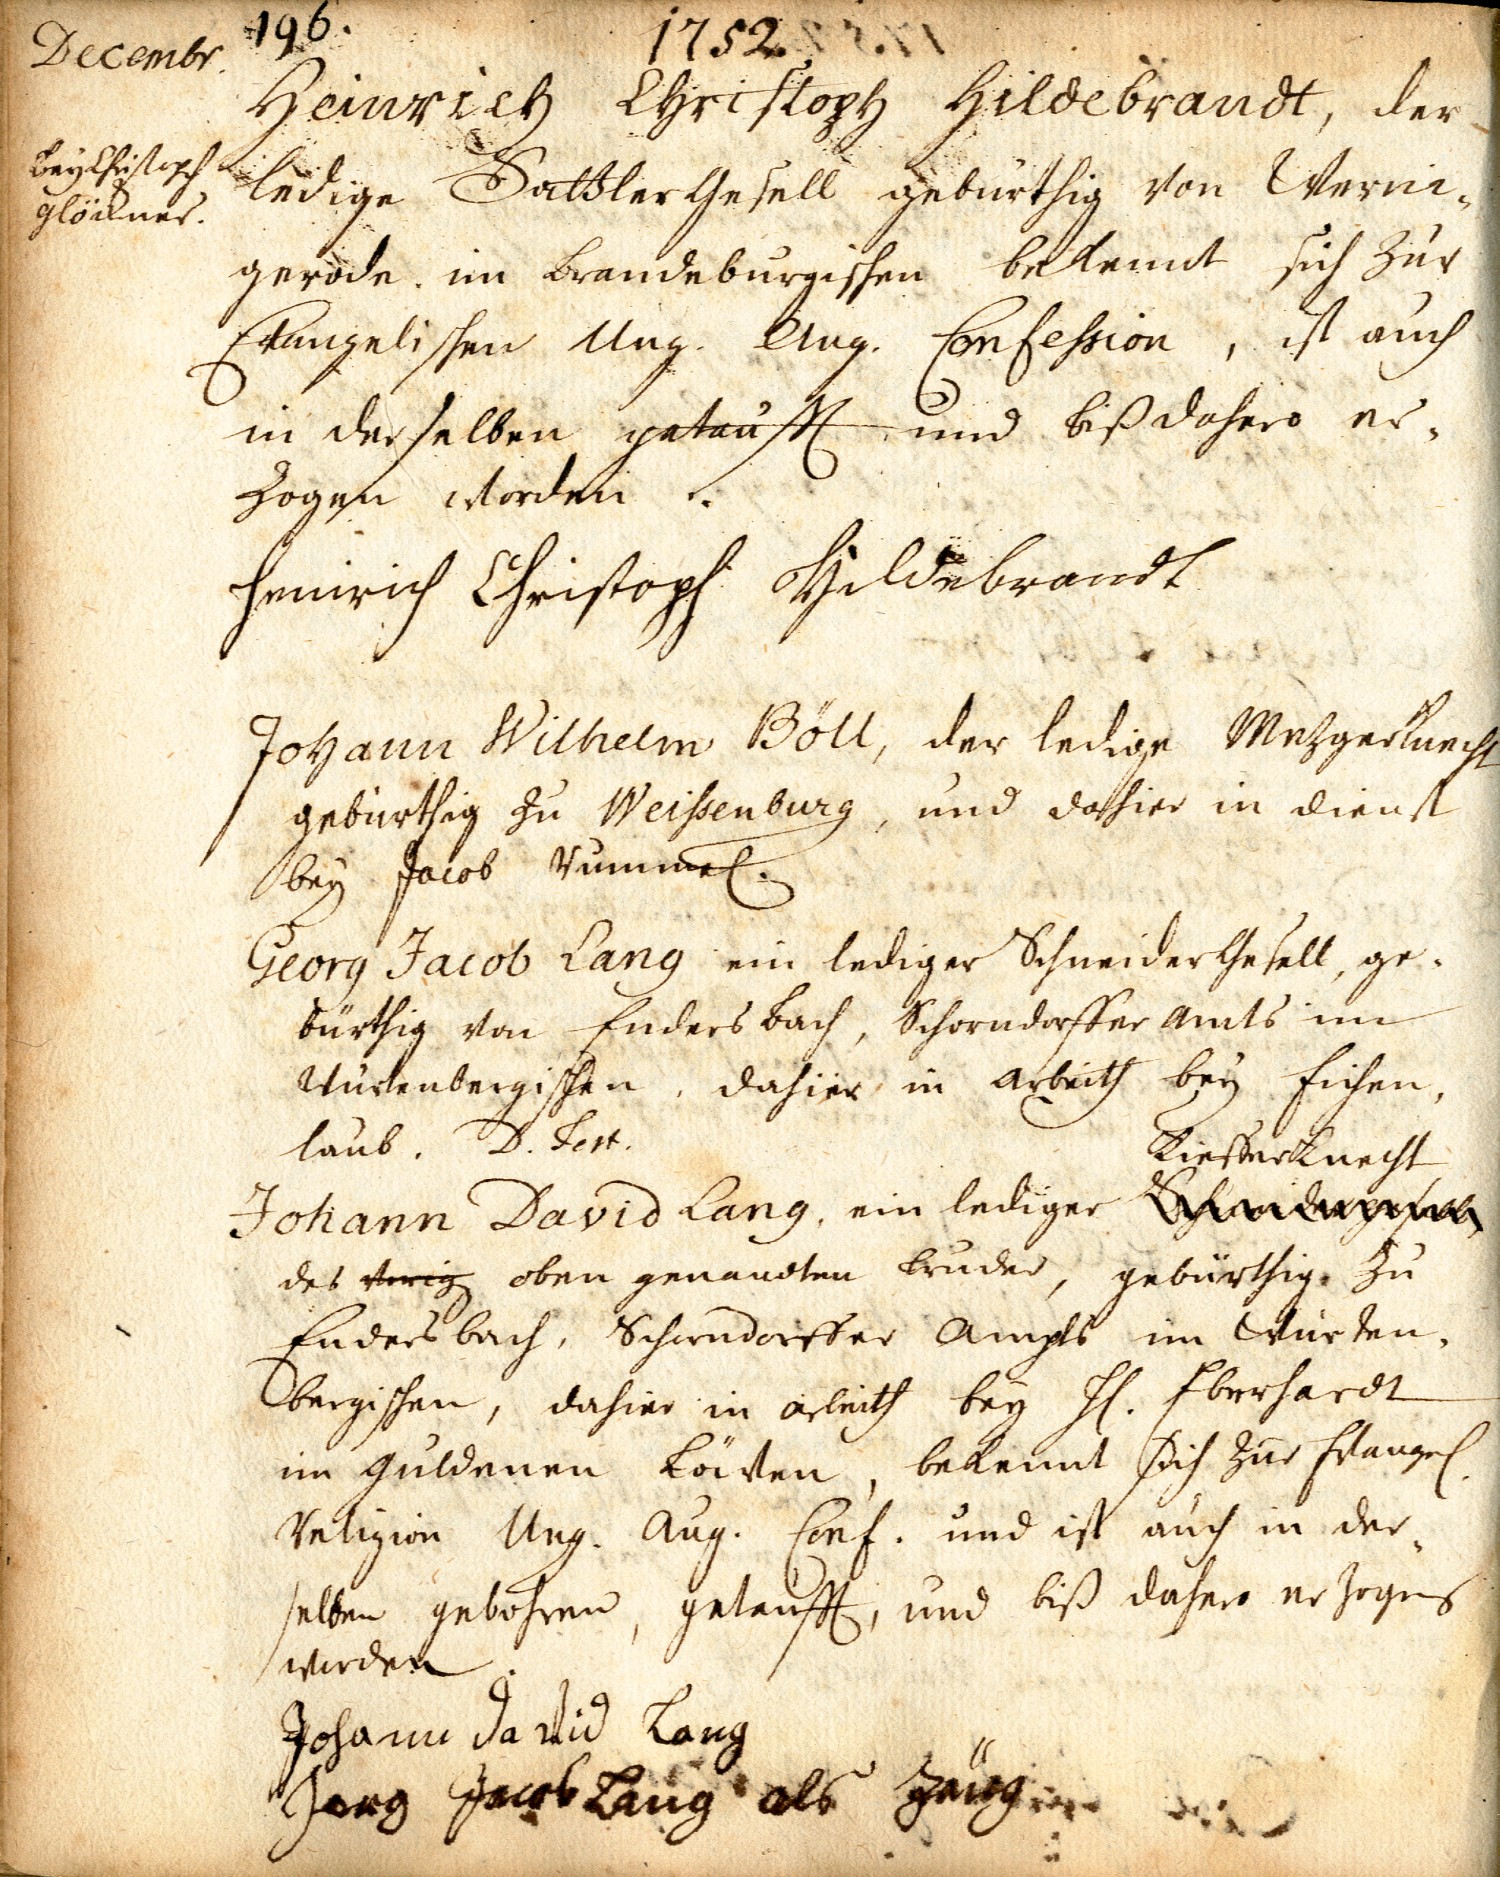 196.
1752.
Decembr.
Heinrich Christoph Hildebrandt, der
bey Christoph
Glöckner.
ledige Sattler Gesell gebürthig von Werni-
gerode. im Brandeburgischen bekennt sich zur
Evangelischen Ung. Aug. Confession, ist auch
in derselben getaufft und biß dahero er-
zogen worden.
Heinrich Christoph Hildebrandt
Johann Wilhelm Böll, der ledige Mezgerknecht
gebürthig zu Weissenburg, und dahier in dienst
bey Jacob Rummel.
Georg Jacob Lang ein lediger Schneider Gesell, ge-
bürthig von Endersbach, Schorndorffer Amts im
Würtenbergischen, dahier in arbeith bey Eichen-
laub. D. Test.
Kieffer Knecht
Johann David Lang, ein lediger Schneidergesell,
des vorig oben genandten Bruder, gebürthig zu
Endersbach, Schorndorffer Ampts im Würten-
bergischen, dahier in arbeith bey H. Eberhardt
im Guldenen Löwen, bekennt sich zur Evangel.
Religion Ung. Aug. Conf. und ist auch in der-
selben gebohren, getaufft, und biß dahero erzogen
worden.
Johann David Lang
Jerg Jacob Lang als Zeüg